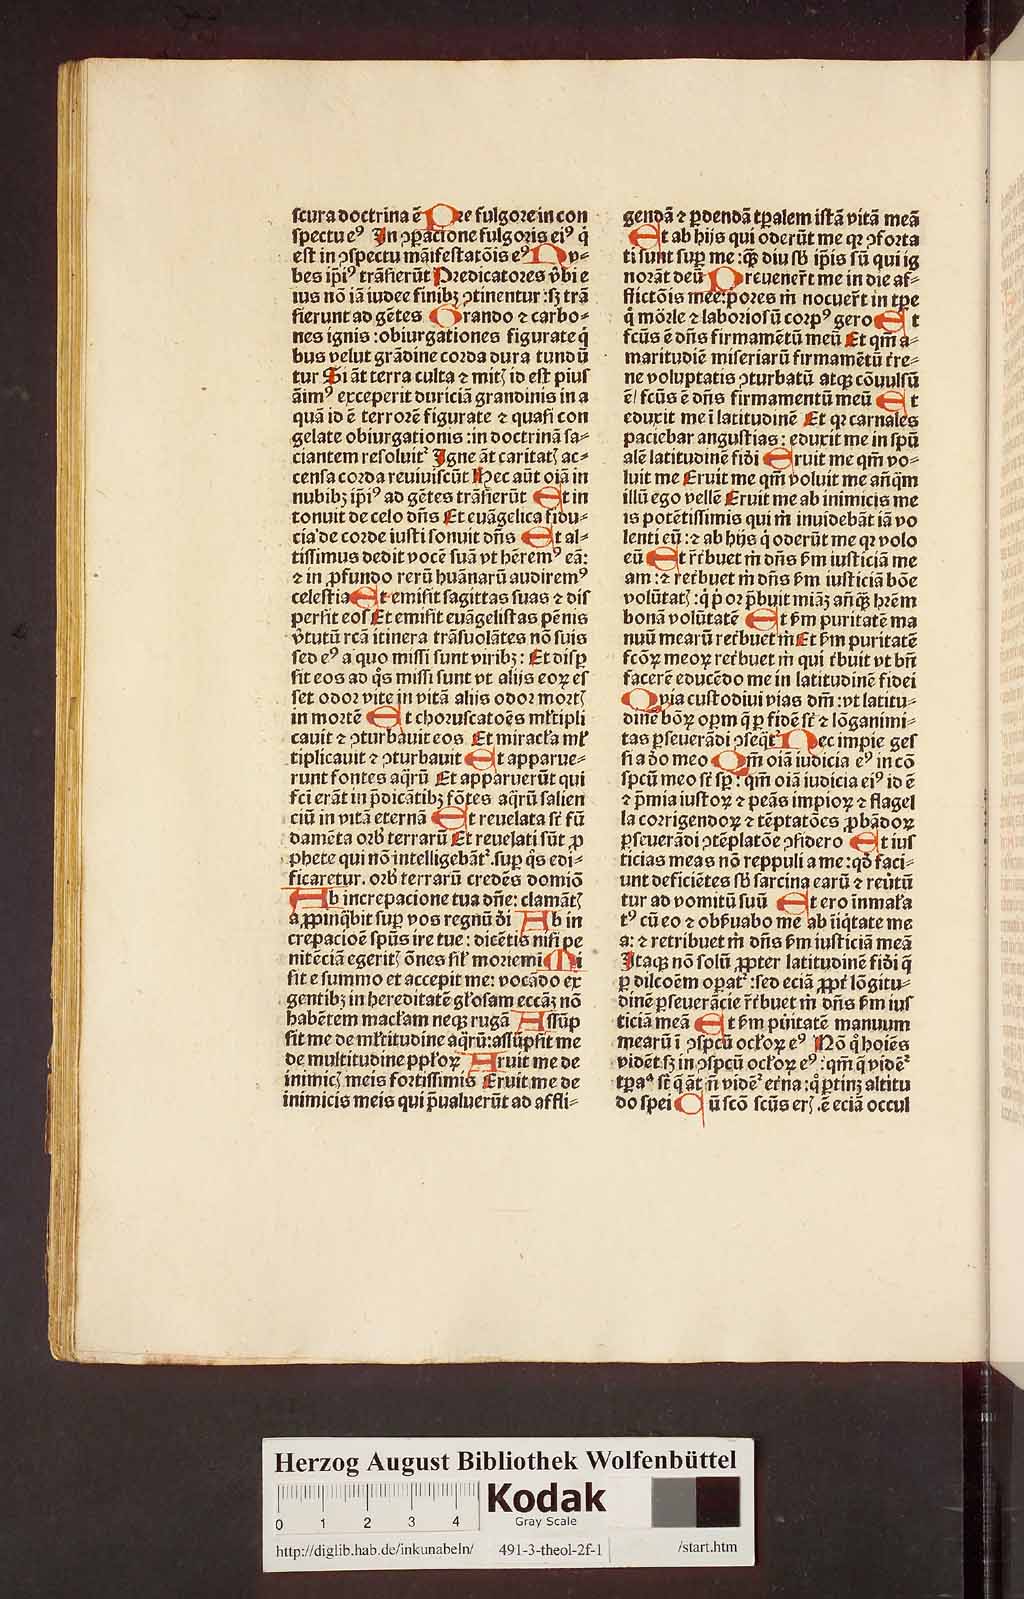 scura doctrina ē Pre fulgore in con
spectu eꝰ In ꝯꝑacione fulgoris eiꝰ q̇
est in ꝯspectu māifestatōis eꝰ Nu⸗
bes ip̄iꝰ trāsierūt Predicatores v̓bi e
ius nō iā iudee finibꝫ ꝯtinentur : sꝫ trā
sierunt ad gētes Grando ⁊ carbo⸗
nes ignis : obiurgationes figurate q̇
bus velut grādine corda dura tundū
tur Si āt terra culta ⁊ mitꝭ id est pius
āimꝰ exceperit duriciā grandinis in a
quā id ē terrorē figurate ⁊ quasi con
gelate obiurgationis : in doctrinā sa⸗
ciantem resoluit᷑ Igne āt caritatꝭ ac⸗
censa corda reuiuiscūt Hec aūt oīa in
nubibꝫ ip̄iꝰ ad gētes trāsierūt Et in
tonuit de celo dn̄s Et euāgelica fidu⸗
cia de corde iusti sonuit dn̄s Et al⸗
tissimus dedit vocē suā vt hēremꝰ eā :
⁊ in ꝓfundo rerū huānarū audiremꝰ
celestia Et emisit sagittas suas ⁊ dis
persit eos Et emisit euāgelistas pēnis
v̓tutū rc̄ā itinera trāsuolātes nō suis
sed eꝰ a quo missi sunt viribꝫ : Et disꝑ
sit eos ad q̊s missi sunt vt alijs eoꝝ es
set odor vite in vitā alijs odor mortꝭ
in mortē Et choruscatoēs ml̓tipli
cauit ⁊ ꝯturbauit eos Et miracl̓a ml̓
tiplicauit ⁊ ꝯturbauit Et apparue⸗
runt fontes aq̄rū Et apparuerūt qui
fc̄i erāt in p̄dicātibꝫ fōtes aq̄rū salien
ciū in vitā eternā Et reuelata sť fū
damēta orb̓ terrarū Et reuelati sūt ꝓ
phete qui nō intelligebāt᷑ . suꝑ q̊s edi⸗
ficaretur . orb̓ terrarū credēs domiō
Ab increpacione tua dn̄e : clamātꝭ
aꝓpinq̄bit suꝑ vos regnū dī Ab in
crepacioē sp̄us ire tue : dicētis nisi pe
nitēciā egeritꝭ ōnes sil̓ moriemi Mi
sit e summo et accepit me : vocādo ex
gentibꝫ in hereditatē gl̓osam ecc̄aꝫ nō
habētem macl̓am neqꝫ rugā Assūp
sit me de ml̓titudine aq̄rū : assūpsit me
de multitudine ppl̓oꝝ Eruit me de
inimicꝭ meis fortissimis Eruit me de
inimicis meis qui p̄ualuerūt ad affli⸗
gendā ⁊ ꝑdendā tꝑalem istā vitā meā
Et ab hijs qui oderūt me qꝛ ꝯforta
ti sunt suꝑ me : qꝫ diu sb̓ ip̄is sū qui ig
norāt deū Preuener̄t me in die af⸗
flictōis mee : p̓ores m̄ nocuer̄t in tꝑe
q̇ mōrle ⁊ laboriosū corpꝰ gero Et
fc̄us ē dn̄s firmamētū meū Et qm̄ a⸗
maritudiē miseriarū firmamētū tr̓re⸗
ne voluptatis ꝯturbatū atqꝫ cōuulsū
ē / fc̄us ē dn̄s firmamentū meū Et
eduxit me ī latitudinē Et qꝛ carnales
paciebar angustias : eduxit me in sp̄ū
alē latitudinē fidi Eruit me qm̄ vo⸗
luit me Eruit me qm̄ voluit me an̄q̄m
illū ego vellē Eruit me ab inimicis me
is potētissimis qui m̄ inuidebāt iā vo
lenti eū : ⁊ ab hijs q̇ oderūt me qꝛ volo
eū Et rēt̓buet m̄ dn̄s ẜm iusticiā me
am : ⁊ ret̓buet m̄ dn̄s ẜm iusticiā bōe
volūtatꝭ : q̇ p̓or p̄buit mīaꝫ an̄qꝫ hr̄em
bonā volūtatē Et ẜm puritatē ma
nuū mearū ret̓buet m̄ Et ẜm puritatē
fc̄oꝝ meoꝝ ret̓buet m̄ qui t̓buit vt bn̄
facerē educēdo me in latitudinē fidei
Quia custodiui vias dm̄ : vt latitu⸗
dinē bōꝝ oꝑm q̄ ꝑ fidē sť ⁊ lōganimi⸗
tas ꝑseuerādi ꝯseq̄t᷑ Nec impie ges
si a dō meo Qm̄ oīa iudicia eꝰ in cō
spc̄u meo sť sꝑ : qm̄ oīa iudicia eiꝰ id ē
⁊ p̄mia iustoꝝ ⁊ peās impioꝝ ⁊ flagel
la corrigendoꝝ ⁊ tēptatōes ꝓbādoꝝ
ꝑseuerādi ꝯtēplatōe ꝯsidero Et ius
ticias meas nō reppuli a me : qd̓ faci⸗
unt deficiētes sb̓ sarcina earū ⁊ reu̓tū
tur ad vomitū suū Et ero inmal̓a
tꝰ cū eo ⁊ obẜuabo me ab iīq̇tate me
a : ⁊ retribuet m̄ dn̄s ẜm iusticiā meā
Itaqꝫ nō solū ꝓpter latitudinē fidi q̄
ꝑ dilcōem oꝑat᷑ : sed eciā ꝓpť lōgitu⸗
dinē ꝑseuerācie rēt̓buet m̄ dn̄s ẜm ius
ticiā meā Et ẜm pu̓itatē manuum
mearū ī ꝯspc̄u ocl̓oꝝ eꝰ Nō q̇ hoīes
vidēt sꝫ in ꝯspc̄u ocl̓oꝝ eꝰ : qm̄ q̄ vidēt᷑
tꝑaᵃ sť q̄ āt n̄ vidēt᷑ et̓na : q̊ ꝑtinꝫ altitu
do spei Cū scō scūs erꝭ . ē eciā occul
Herzog August Bibliothek Wolfenbüttel
0 1 2 3 4
Kodak
Gray Scale
http://diglib.hab.de/inkunabeln/ 491-3-theol-2f-1 /start.htm